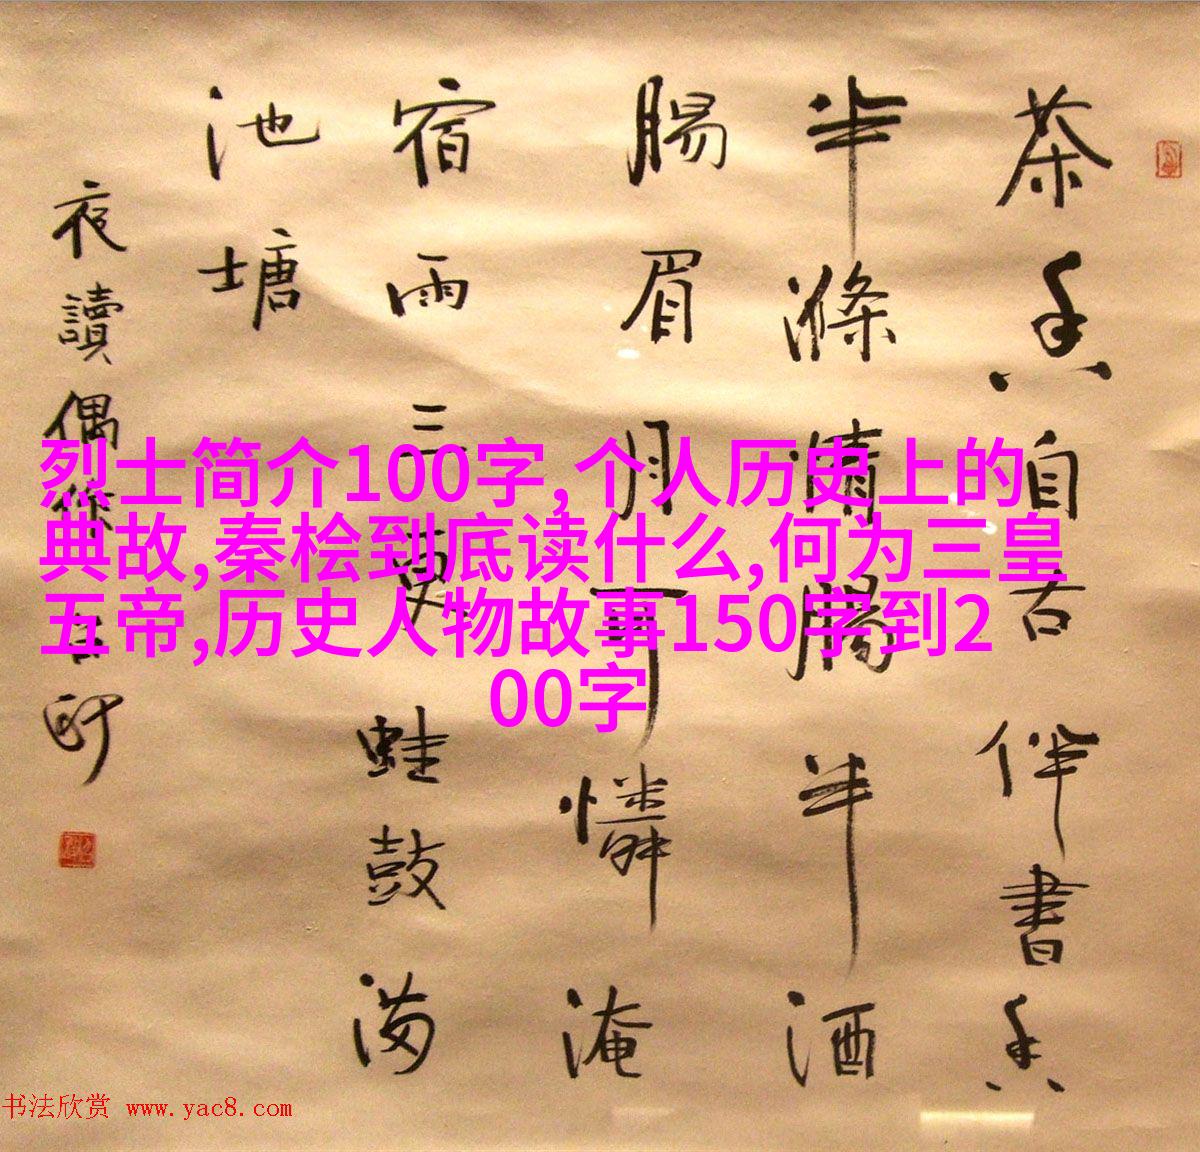 茶香自古伴書香
半滌清腸半酒
腸眉月可憐淹
宿雨三更蛙鼓满
池塘
夜讀偶
烈士简介100字,个人历史上的
典故,秦桧到底读什么,何为三皇
五帝,历史人物故事150字到2
00字
书法欣赏 www.yac8.com